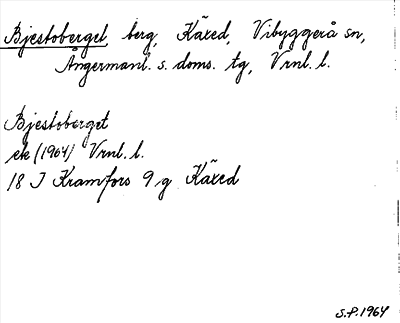 Bjestoberget, berg, Käxed, Vibyggerå sn,
Ångermanl. s. doms. tg, Vrnl. l.
Bjestoberget
ek (1964) Vrnl. l.
18 J Kramfors 9 g Käxed
S.P. 1964